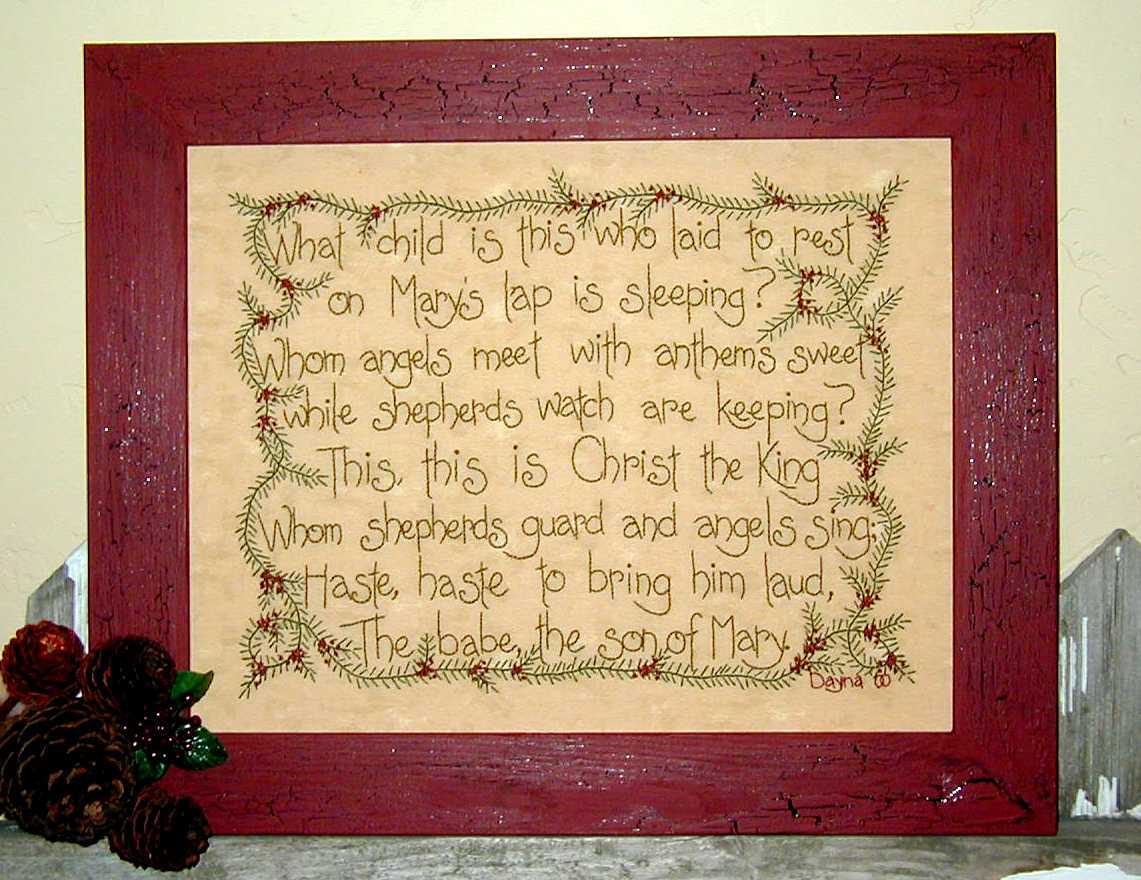 What child is this who laid to rest
on Mary's lap is sleeping?
Whom angels meet with anthems sweet
while shepherds watch are keeping?
This, this is Christ the King
Whom shepherds guard and angels sing;
Haste, haste to bring him laud,
The babe, the son of Mary.
Dayna 00